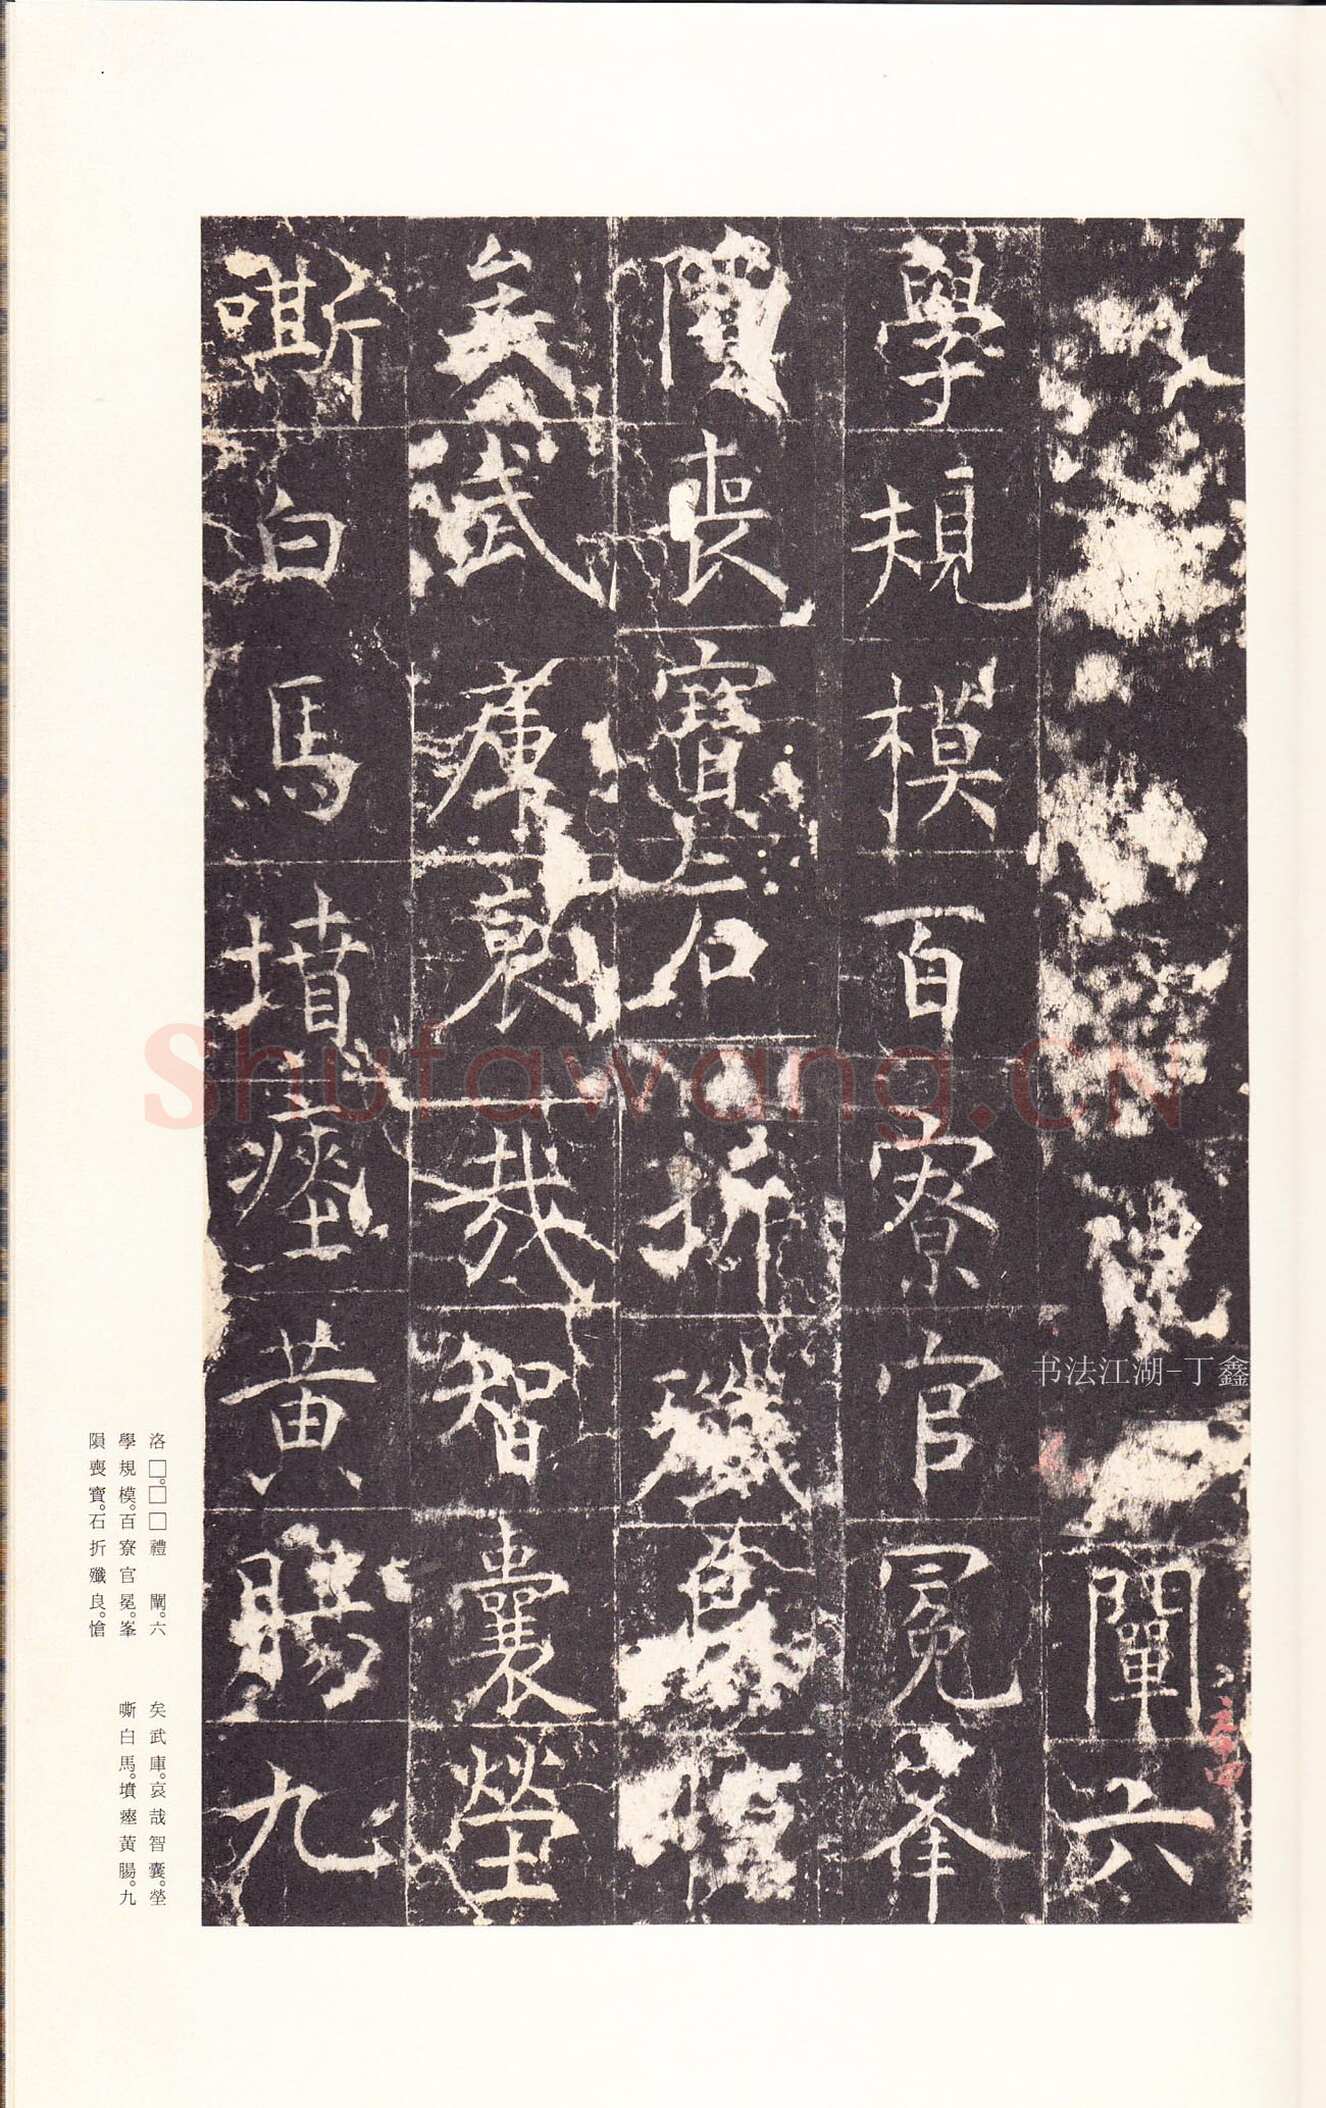 禮闈六
學規模百寮官冕峯
隕喪寶石折殲良愴
矣武庫哀哉智囊塋
嘶白馬墳瘞黃腸九
洛□。□□禮闈。六
學規模。百寮官冕。峯
隕喪寶。石折殲良。愴
矣武庫。哀哉智囊。塋
嘶白馬。墳瘞黃腸。九
Shufawang.CN
书法江湖-丁鑫